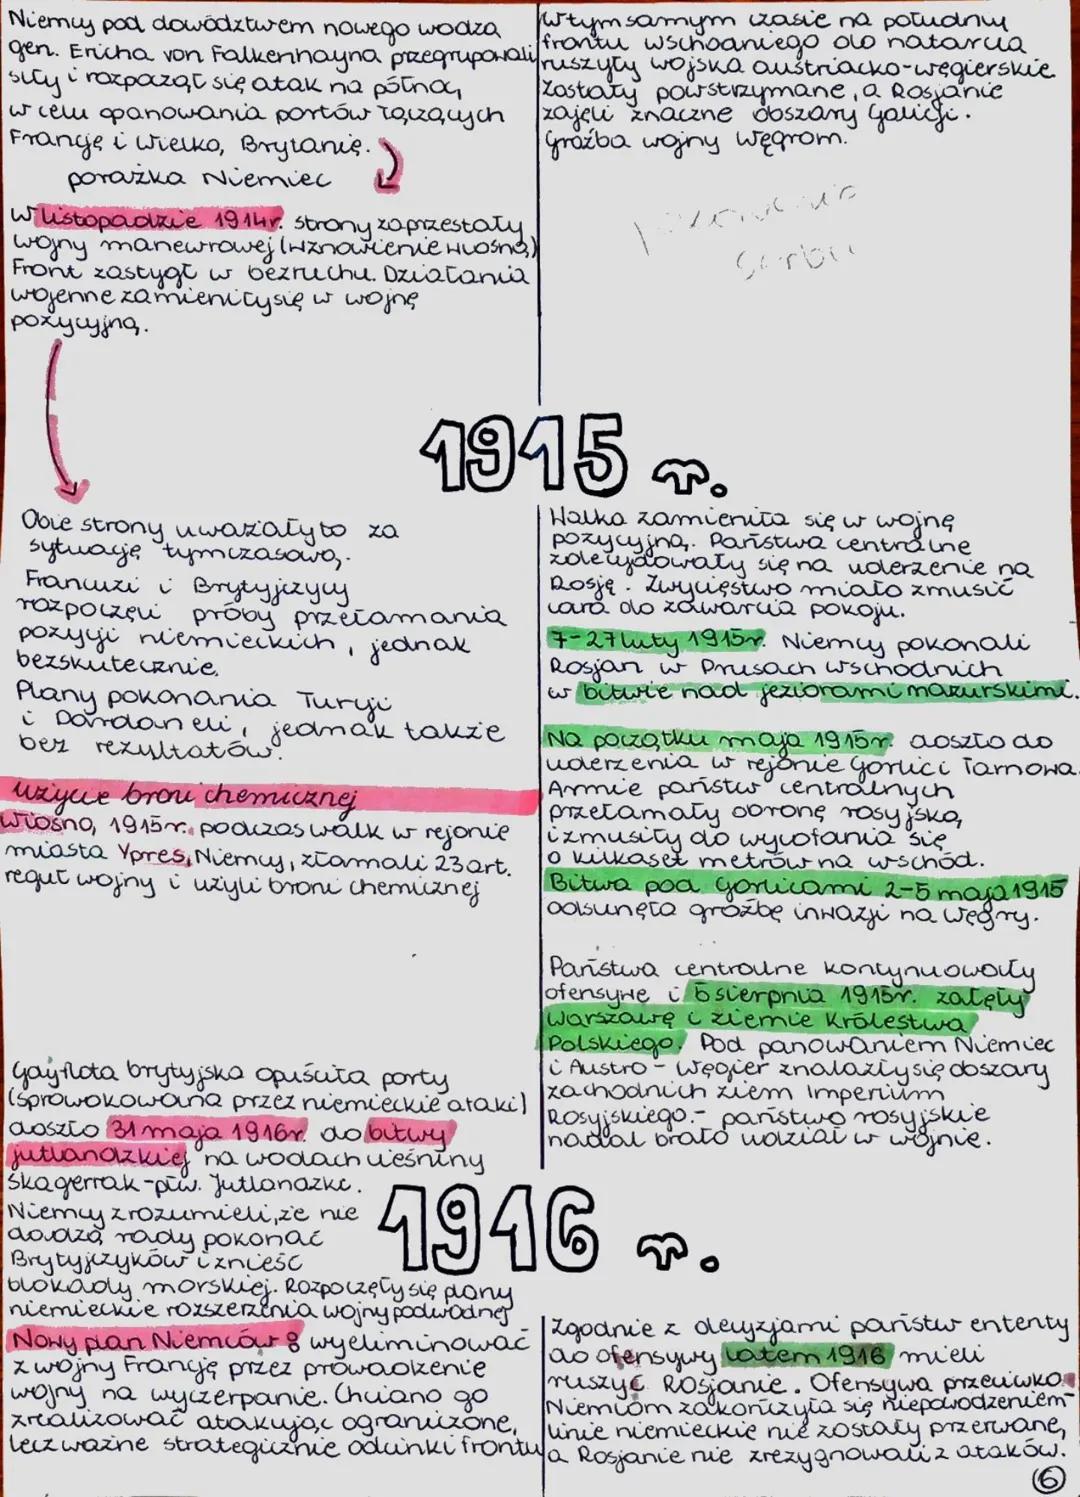 Niemcy pod dowództwem nowego wodza
gen. Ericha von Falkenhayna przegrupowali
siły i rozpoczął się atak na północ,
w celu opanowania portów łączących
Francję i Wielką Brytanię.
porażka Niemiec
W listopadzie 1914r. strony zaprzestały
wojny manewrowej (wznowienie wiosną)
Front zastygł w bezruchu. Działania
wojenne zamieniły się w wojnę
pozycyjną.
W tym samym czasie na południu
frontu wschodniego do natarcia
ruszyły wojska austriacko-węgierskie
Zostały powstrzymane, a Rosjanie
zajęli znaczne obszary Galicji.
Groźba wojny Węgrom.
1915 r.
Obie strony uważały to za
sytuację tymczasową.
Francuzi i Brytyjczycy
rozpoczęli próby przełamania
pozycji niemieckich, jednak
bezskutecznie.
Plany pokonania Turcji
i Dardaneli, jednak także
bez rezultatów.
użycie broni chemicznej
Wiosną 1915r. podczas walk w rejonie
miasta Ypres, Niemcy, złamali 23 art.
reguł wojny i użyli broni chemicznej
Gdy flota brytyjska opuściła porty
(sprowokowana przez niemieckie ataki)
doszło 31 maja 1916r. do bitwy
jutlandzkiej na wodach cieśniny
Skagerrak - płw. Jutlandzki.
Niemcy zrozumieli, że nie
dadzą rady pokonać
Brytyjczyków i znieść
blokady morskiej. Rozpoczęły się plany
niemieckie rozszerzenia wojny podwodnej
Nowy plan Niemców: wyeliminować
z wojny Francję przez prowadzenie
wojny na wyczerpanie. Chciano go
zrealizować atakując ograniczone,
lecz ważne strategicznie odcinki frontu
Walka zamieniła się w wojnę
pozycyjną. Państwa centralne
zdecydowały się na uderzenie na
Rosję. Zwycięstwo miało zmusić
cara do zawarcia pokoju.
7-27 luty 1915r. Niemcy pokonali
Rosjan w Prusach wschodnich
w bitwie nad jeziorami mazurskimi.
Na początku maja 1915r. doszło do
uderzenia w rejonie Gorlic i Tarnowa.
Armie państw centralnych
przełamały obronę rosyjską
i zmusiły do wycofania się
o kilkaset metrów na wschód.
Bitwa pod Gorlicami 2-5 maja 1915
odsunęła groźbę inwazji na Węgry.
Państwa centralne kontynuowały
ofensywę i 5 sierpnia 1915r. zajęły
Warszawę i ziemie Królestwa
Polskiego. Pod panowaniem Niemiec
i Austro-Węgier znalazły się obszary
zachodnich ziem Imperium
Rosyjskiego. - państwo rosyjskie
nadal brało udział w wojnie.
1916 r.
Zgodnie z decyzjami państw ententy
do ofensywy latem 1916 mieli
ruszyć Rosjanie. Ofensywa przeciwko
Niemcom zakończyła się niepowodzeniem-
linie niemieckie nie zostały przerwane,
a Rosjanie nie zrezygnowali z ataków.
6